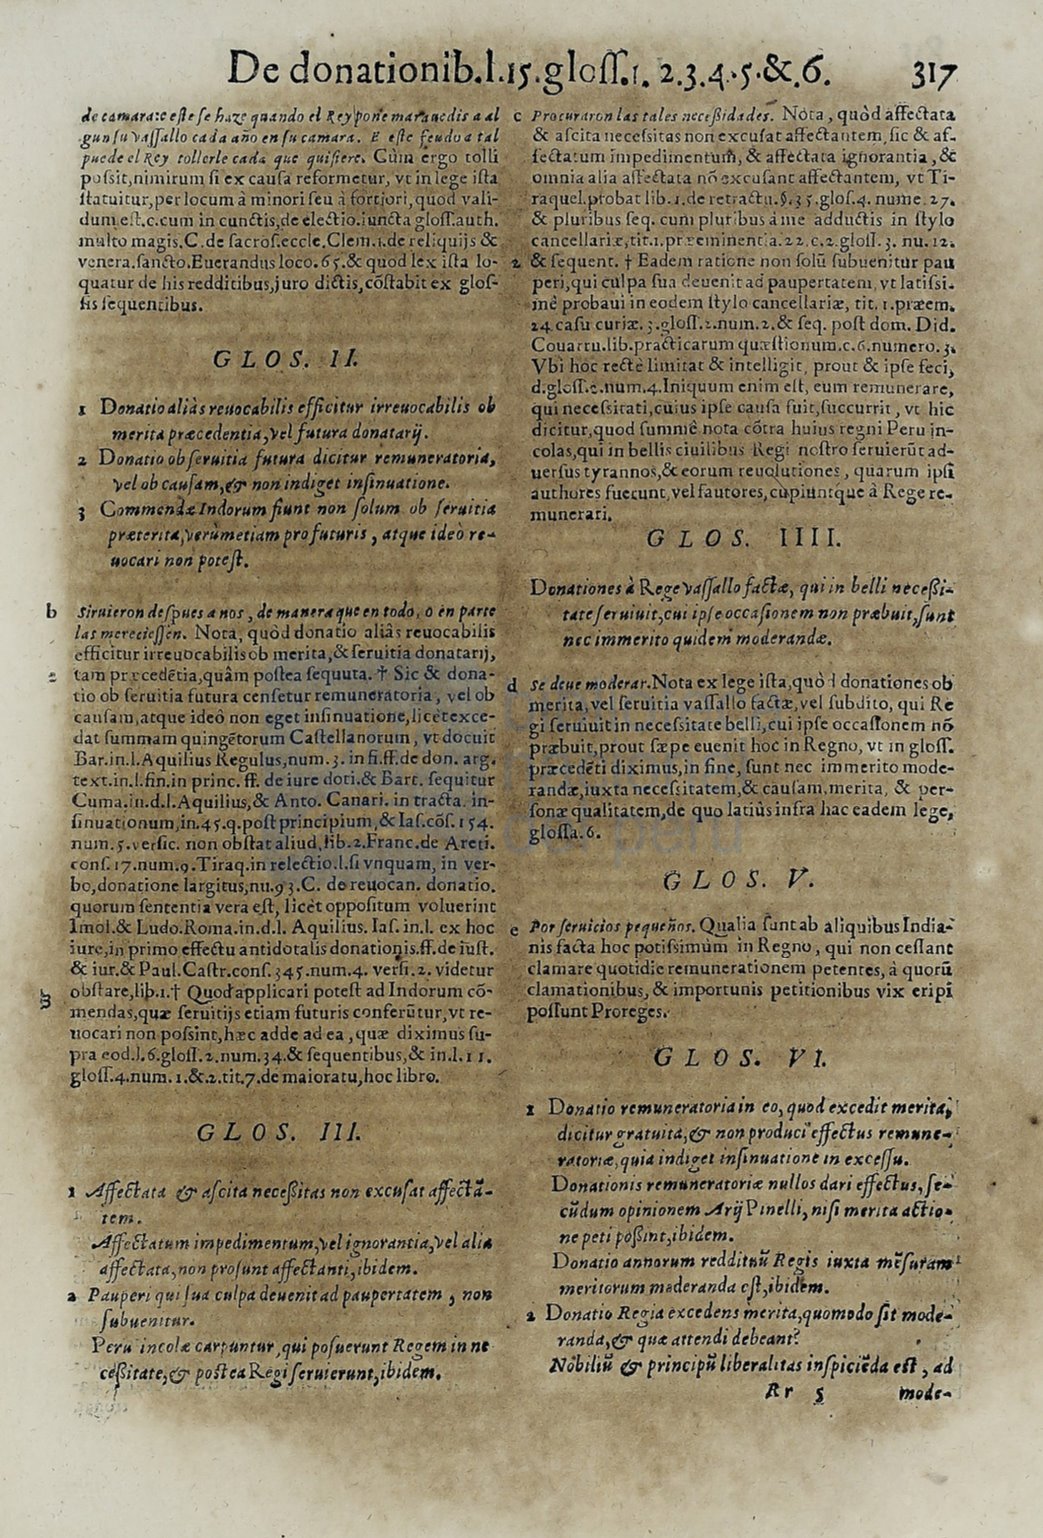 De donationib.l.15.gloſſ.1. 2.3.4.5.&.6. 317
de camara: e eſte ſe haze quando el Rey pone marauedis a al
gun ſu vaſſallo cada año en ſu camara. E eſte feudo a tal
puede el Rey tollerle cada que quiſiere. Cùm ergo tolli
poſsit, nimirum ſi ex cauſa reformetur, vt in lege iſta
ſtatuitur, per locum à minori ſeu à fortiori, quod vali-
dum eſt, c. cum in cunctis, de electio. iuncta gloſſ. auth.
multo magis. C. de ſacroſ. eccle. Clem. 1. de reliquijs &
venera. ſancto. Euerandus loco. 65. & quod lex iſta lo-
quatur de his redditibus, juro dictis, cõſtabit ex gloſ-
ſis ſequentibus.
GLOS. II.
1 Donatio aliàs reuocabilis efficitur irreuocabilis ob
merita præcedentia, vel futura donatarij.
2 Donatio ob ſeruitia futura dicitur remuneratoria,
vel ob cauſam, & non indiget inſinuatione.
3 Commendæ Indorum fiunt non ſolum ob ſeruitia
præterita, verùmetiam pro futuris, atque ideò re-
uocari non poteſt.
b Siruieron deſpues a nos, de manera que en todo, o en parte
las merecieſſen. Nota, quòd donatio aliàs reuocabilis
efficitur irreuocabilis ob merita, & ſeruitia donatarij,
2 tam præcedẽtia, quàm poſtea ſequuta. † Sic & dona-
tio ob ſeruitia futura cenſetur remuneratoria, vel ob
cauſam, atque ideò non eget inſinuatione, licèt exce-
dat ſummam quingẽtorum Caſtellanorum, vt docuit
Bar. in. l. Aquilius Regulus, num. 3. in fi. ff. de don. arg.
text. in. l. fin. in princ. ff. de iure doti. & Bart. ſequitur
Cuma. in. d. l. Aquilius, & Anto. Canari. in tracta. in-
ſinuationum, in. 45. q. poſt principium, & Iaſ. cõſ. 154.
num. 5. verſic. non obſtat aliud, lib. 2. Franc. de Areti.
conſ. 17. num. 9. Tiraq. in relectio. l. ſi vnquam, in ver-
bo, donatione largitus, nu. 93. C. de reuocan. donatio.
quorum ſententia vera eſt, licèt oppoſitum voluerint
Imol. & Ludo. Roma. in. d. l. Aquilius. Iaſ. in. l. ex hoc
iure, in primo effectu antidotalis donationis. ff. de iuſt.
& iur. & Paul. Caſtr. conſ. 345. num. 4. verſi. 2. videtur
3 obſtare, lib. 1. † Quod applicari poteſt ad Indorum cõ-
mendas, quæ ſeruitijs etiam futuris conferũtur, vt re-
uocari non poſsint, hæc adde ad ea, quæ diximus ſu-
pra eod. l. 6. gloſſ. 2. num. 34. & ſequentibus, & in. l. 11.
gloſſ. 4. num. 1. &. 2. tit. 7. de maioratu, hoc libro.
GLOS. III.
1 Affectata & aſcita neceſsitas non excuſat affectã-
tem.
Affectatum impedimentum, vel ignorantia, vel alia
affectata, non proſunt affectanti, ibidem.
2 Pauperi qui ſua culpa deuenit ad paupertatem, non
ſubuenitur.
Peru incolæ carpuntur, qui poſuerunt Regem in ne
ceſsitate, & poſtea Regi ſeruierunt, ibidem.
c Procuraron las tales neceſsidades. Nota, quòd affectata
& aſcita neceſsitas non excuſat affectantem, ſic & af-
fectatum impedimentum, & affectata ignorantia, &
omnia alia affectata nõ excuſant affectantem, vt Ti-
raquel. probat lib. 1. de retractu. §. 35. gloſ. 4. nume. 27.
& pluribus ſeq. cum pluribus à me adductis in ſtylo
cancellariæ, tit. 1. præeminentia. 22. c. 2. gloſſ. 3. nu. 12.
2 & ſequent. † Eadem ratione non ſolũ ſubuenitur pau
peri, qui culpa ſua deuenit ad paupertatem, vt latiſsi-
mè probaui in eodem ſtylo cancellariæ, tit. 1. præem.
24. caſu curiæ. 3. gloſſ. 2. num. 2. & ſeq. poſt dom. Did.
Couarru. lib. practicarum quæſtionum. c. 6. numero. 3.
Vbi hoc rectè limitat & intelligit, prout & ipſe feci,
d. gloſſ. 2. num. 4. Iniquum enim eſt, eum remunerare,
qui neceſsitati, cuius ipſe cauſa fuit, ſuccurrit, vt hic
dicitur, quod ſummè nota cõtra huius regni Peru in-
colas, qui in bellis ciuilibus Regi noſtro ſeruierũt ad-
uerſus tyrannos, & eorum reuolutiones, quarum ipſi
authores fuerunt, vel fautores, cupiuntque à Rege re-
munerari.
GLOS. IIII.
Donationes à Rege vaſſallo factæ, qui in belli neceſsi-
tate ſeruiuit, cui ipſe occaſionem non præbuit, ſunt
nec immerito quidem moderandæ.
d Se deue moderar. Nota ex lege iſta, quòd donationes ob
merita, vel ſeruitia vaſſallo factæ, vel ſubdito, qui Re
gi ſeruiuit in neceſsitate belli, cui ipſe occaſionem nõ
præbuit, prout ſæpe euenit hoc in Regno, vt in gloſſ.
præcedẽti diximus, in fine, ſunt nec immerito mode-
randæ, iuxta neceſsitatem, & cauſam, merita, & per-
ſonæ qualitatem, de quo latiùs infra hac eadem lege,
gloſſa. 6.
GLOS. V.
e Por ſeruicios pequeños. Qualia ſunt ab aliquibus India-
nis facta hoc potiſsimùm in Regno, qui non ceſſant
clamare quotidie remunerationem petentes, à quorũ
clamationibus, & importunis petitionibus vix eripi
poſſunt Proreges.
GLOS. VI.
1 Donatio remuneratoria in eo, quod excedit merita,
dicitur gratuita, & non producit effectus remune-
ratoriæ, quia indiget inſinuatione in exceſſu.
Donationis remuneratoriæ nullos dari effectus, ſe-
cũdum opinionem Arij Pinelli, niſi merita actio-
ne peti poſsint, ibidem.
Donatio annorum reddituũ Regis iuxta mẽſuram
meritorum moderanda eſt, ibidem.
2 Donatio Regia excedens merita, quomodo ſit mode-
randa, & quæ attendi debeant?
Nobiliũ & principũ liberalitas inſpiciẽda eſt, ad
Rr 5 mode-